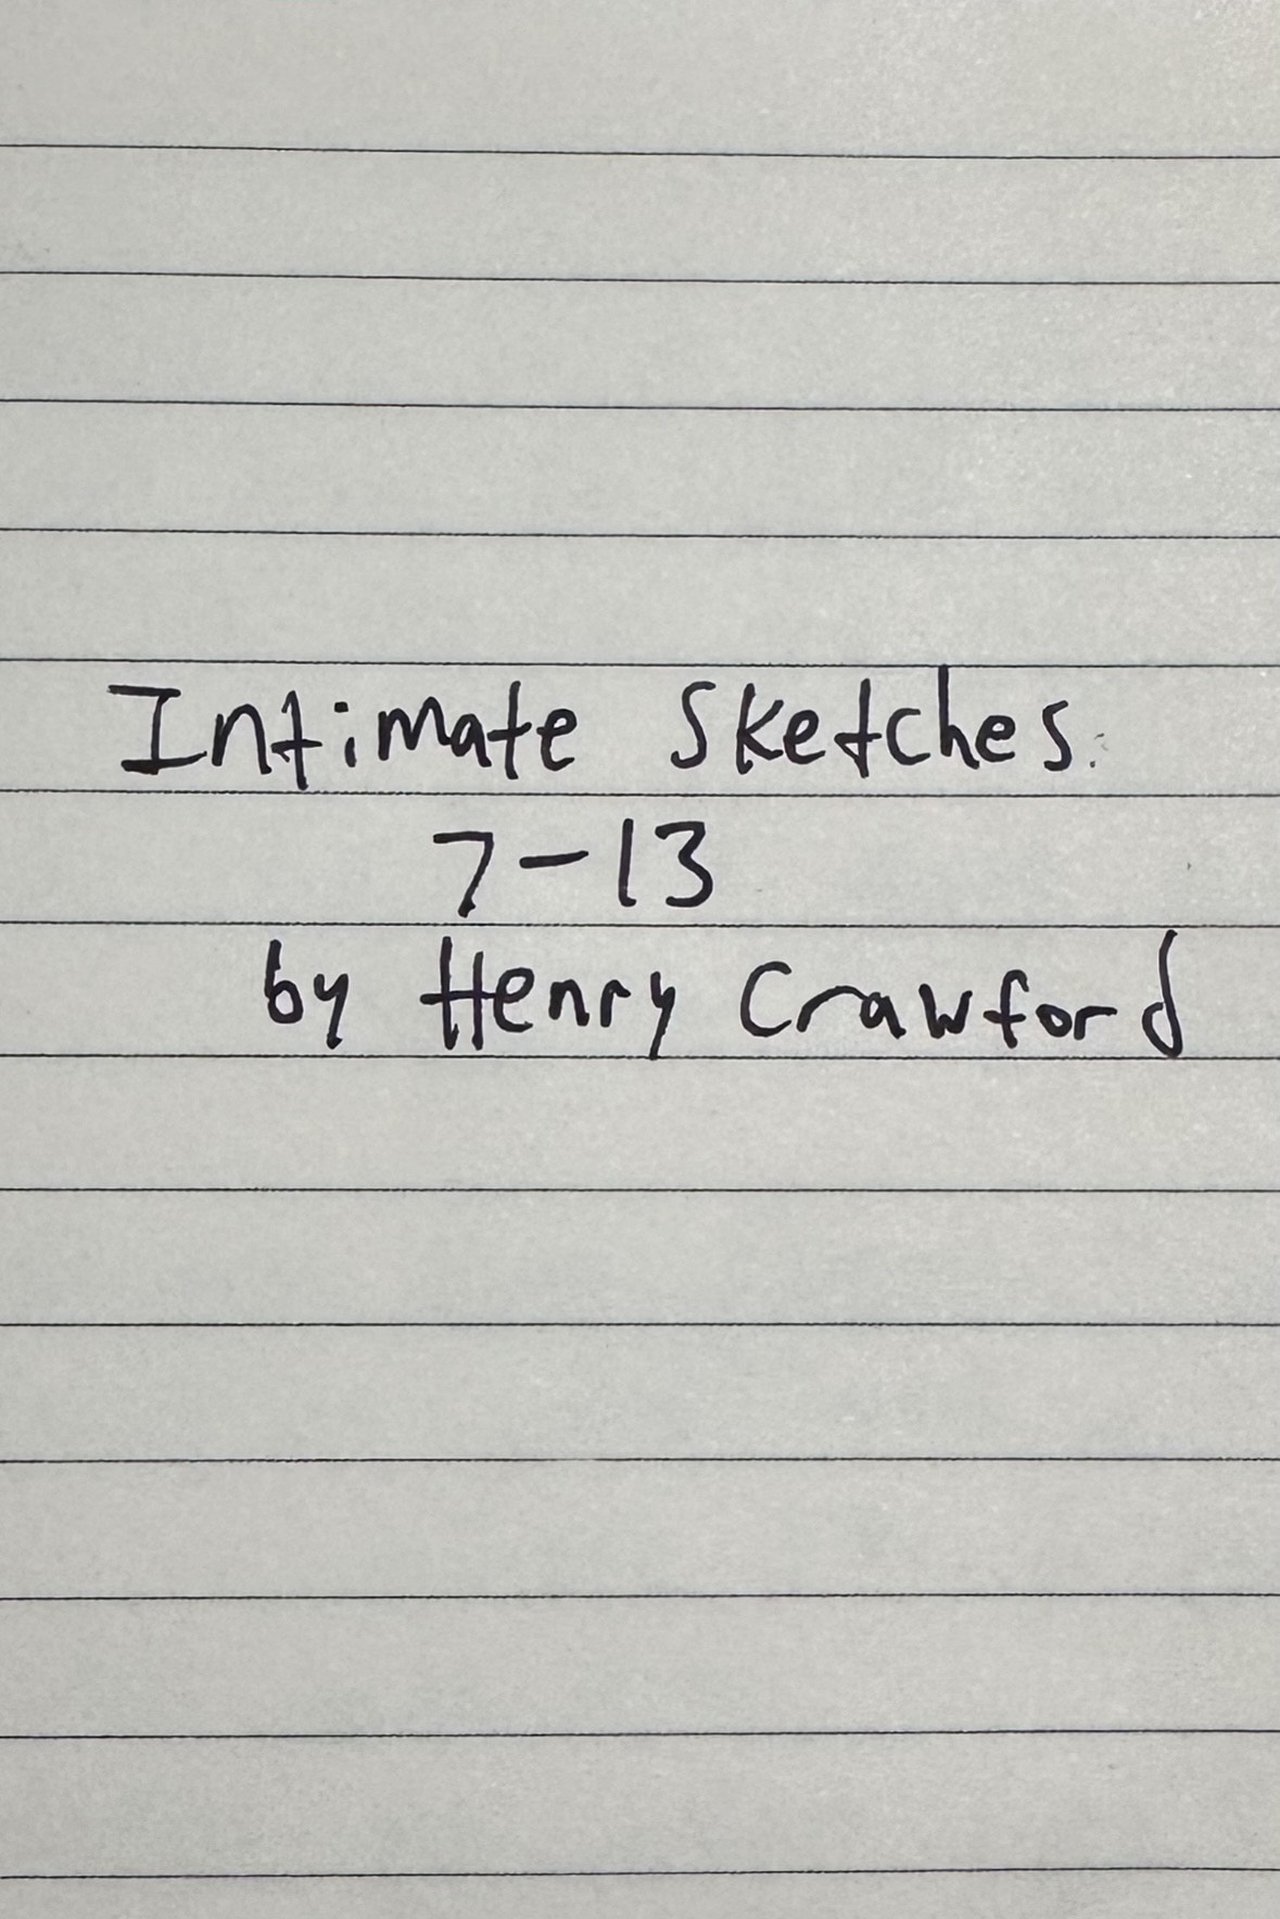 Intimate Sketches:
7-13
by Henry Crawford